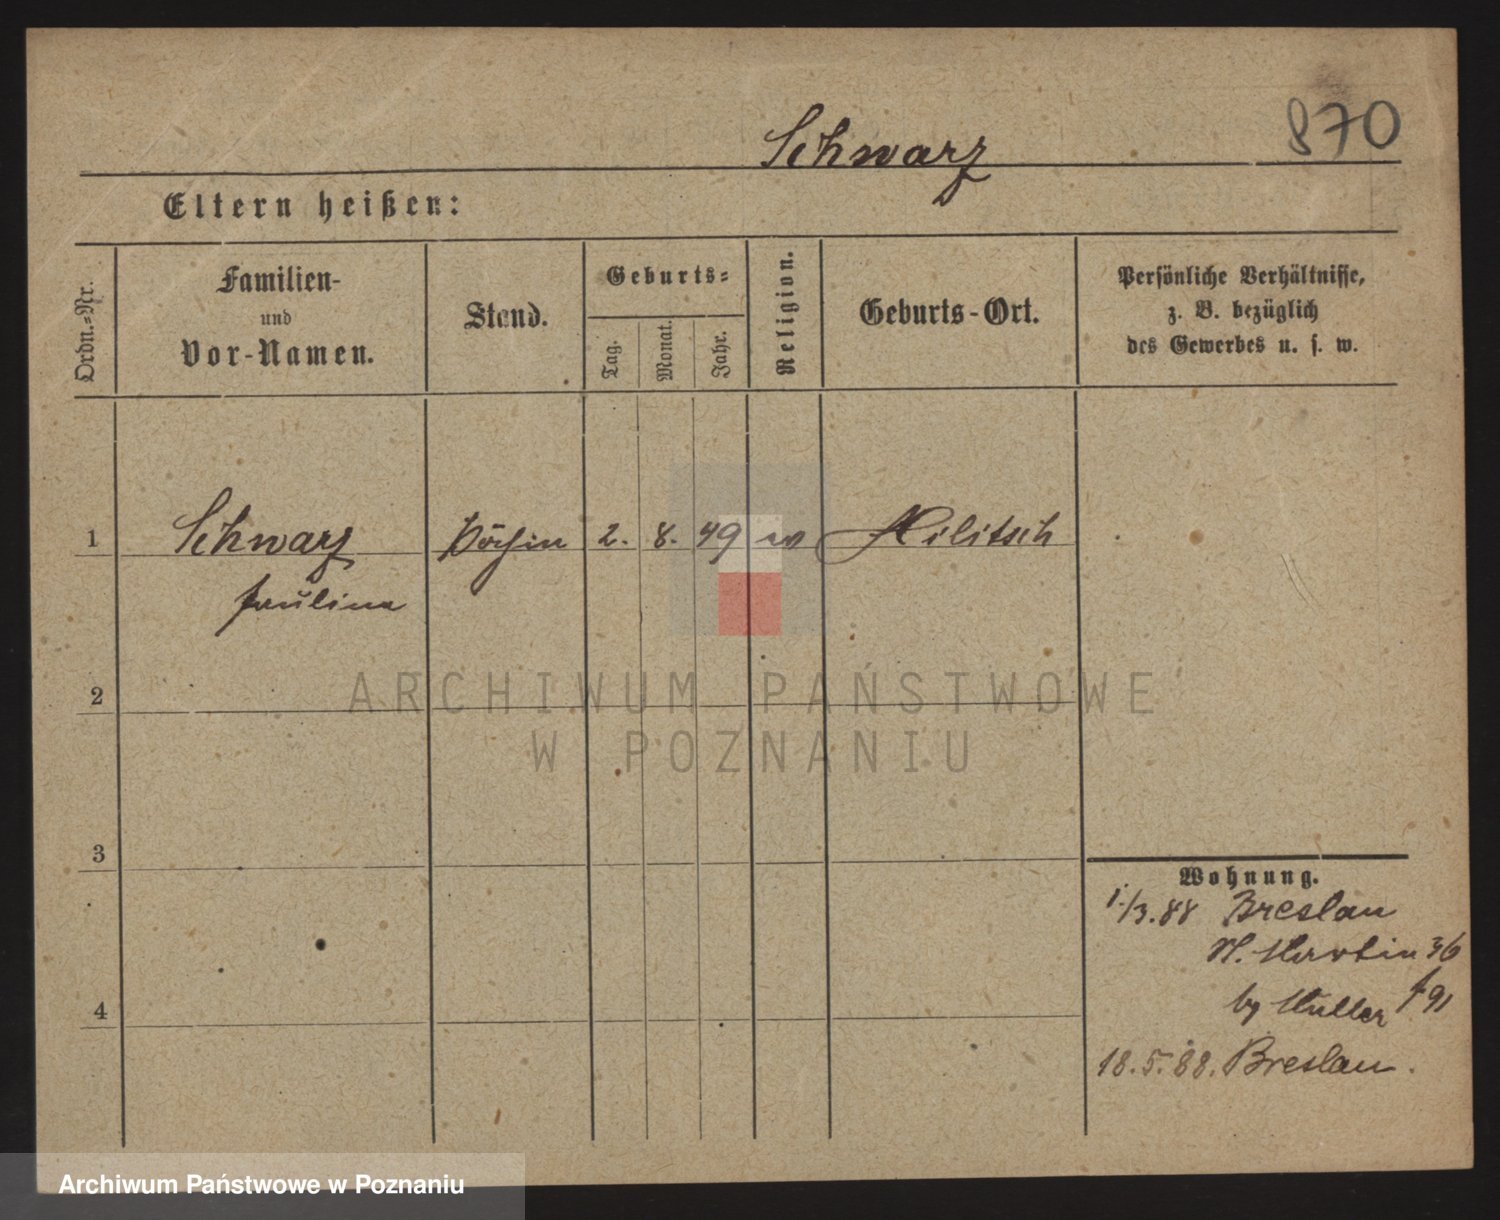 Schwarz 870
Eltern heißen:
Ordn.-Nr.
Familien-
und
Vor-Namen.
Stand.
Geburts-
Tag.
Monat.
Jahr.
Religion.
Geburts-Ort.
Persönliche Verhältnisse,
z. B. bezüglich
des Gewerbes u. s. w.
1 Schwarz Köchin 2. 8. 49 Militsch
Paulina
2
3
4
Wohnung.
1./3.88 Breslau
St. Martin 36
by Müller f 91
18.5.88. Breslau.
ARCHIWUM PAŃSTWOWE
W POZNANIU
Archiwum Państwowe w Poznaniu